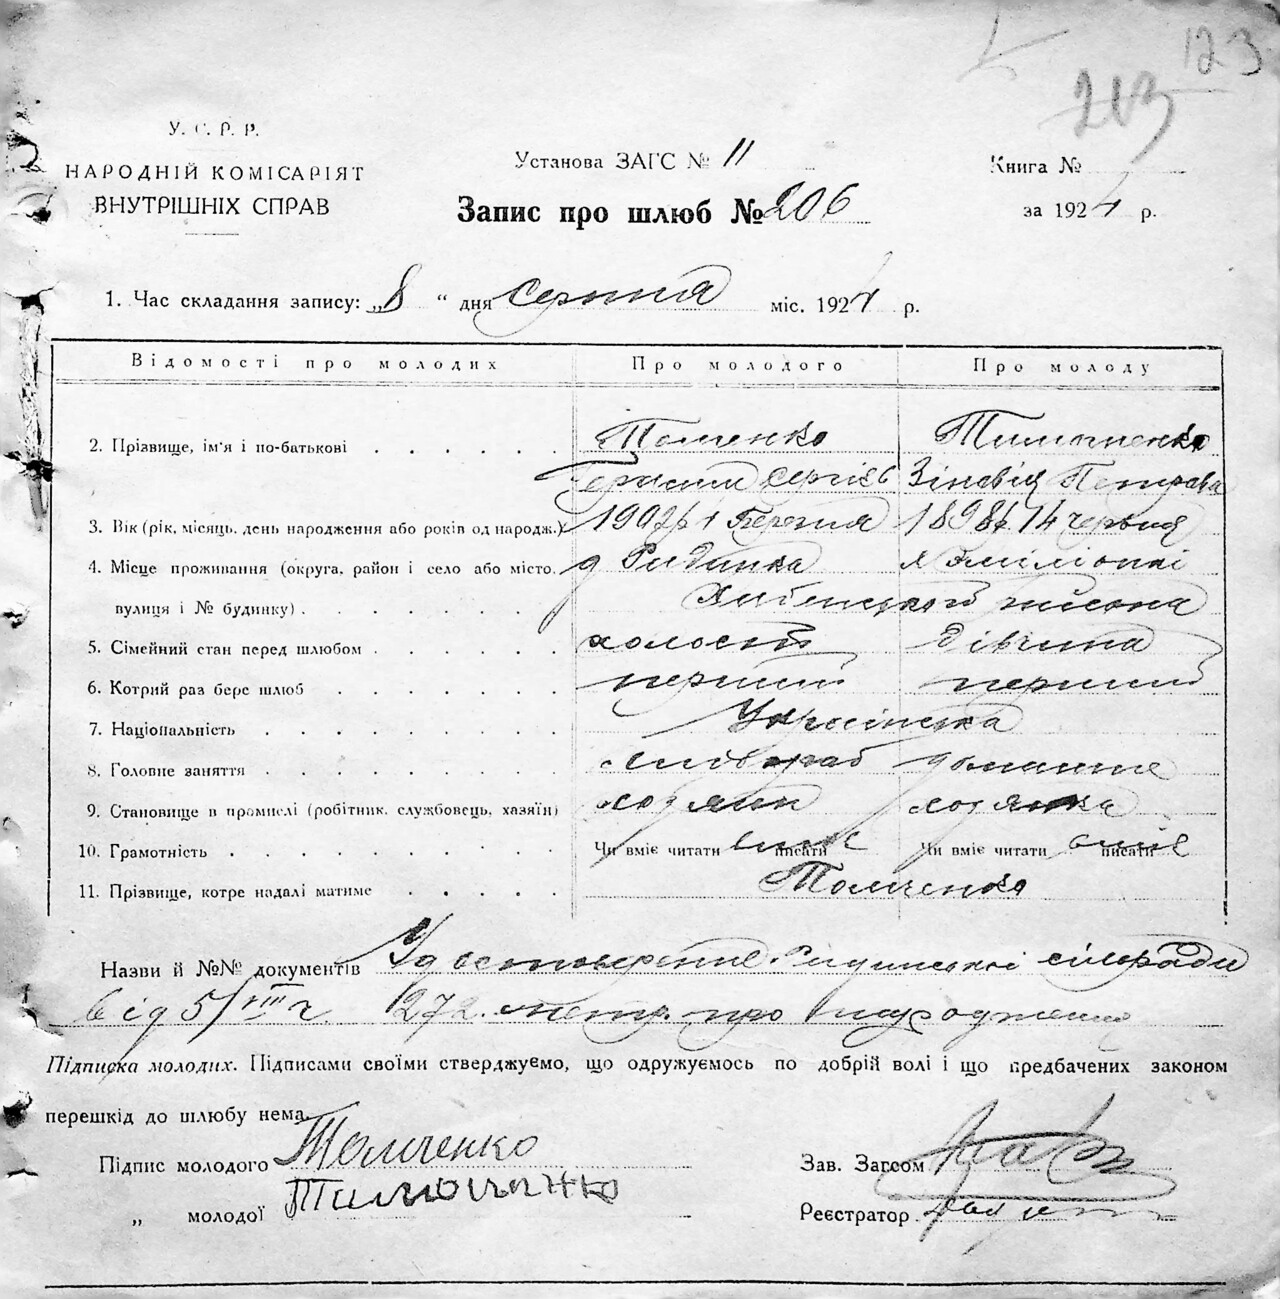 123
213
У. С. Р. Р.
НАРОДНІЙ КОМІСАРІЯТ
ВНУТРІШНІХ СПРАВ
Установа ЗАГС № 11
Запис про шлюб № 206
Книга №
за 1924 р.
1. Час складання запису: „8 “ дня серпня міс. 1924 р.
Відомості про молодих Про молодого Про молоду
2. Прізвище, ім'я і по-батькові Толченко Тимошенко
Герасим Сергієв Зіновія Петрова
3. Вік (рік, місяць, день народження або років од народж.) 1 березня 1898 р. 14 червня
4. Місце проживання (округа, район і село або місто, д Рудинка
вулиця і № будинку) району
5. Сімейний стан перед шлюбом холост дівчина
6. Котрий раз бере шлюб перший перший
7. Національність Українська
8. Головне заняття хлібороб домашнє
9. Становище в промислі (робітник, службовець, хазяїн) хозяин хозяйка
10. Грамотність Чи вміє читати вміє писати Чи вміє читати вміє писати
11. Прізвище, котре надалі матиме Толченко
Назви й №№ документів Удостоверение сільради
від 5/VIII ч 272. метр. про народження
Підписка молодих. Підписами своїми стверджуємо, що одружуємось по добрій волі і що предбачених законом
перешкід до шлюбу нема.
Підпис молодого Толченко
„ молодої Тимошенко
Зав. Загсом
Реєстратор